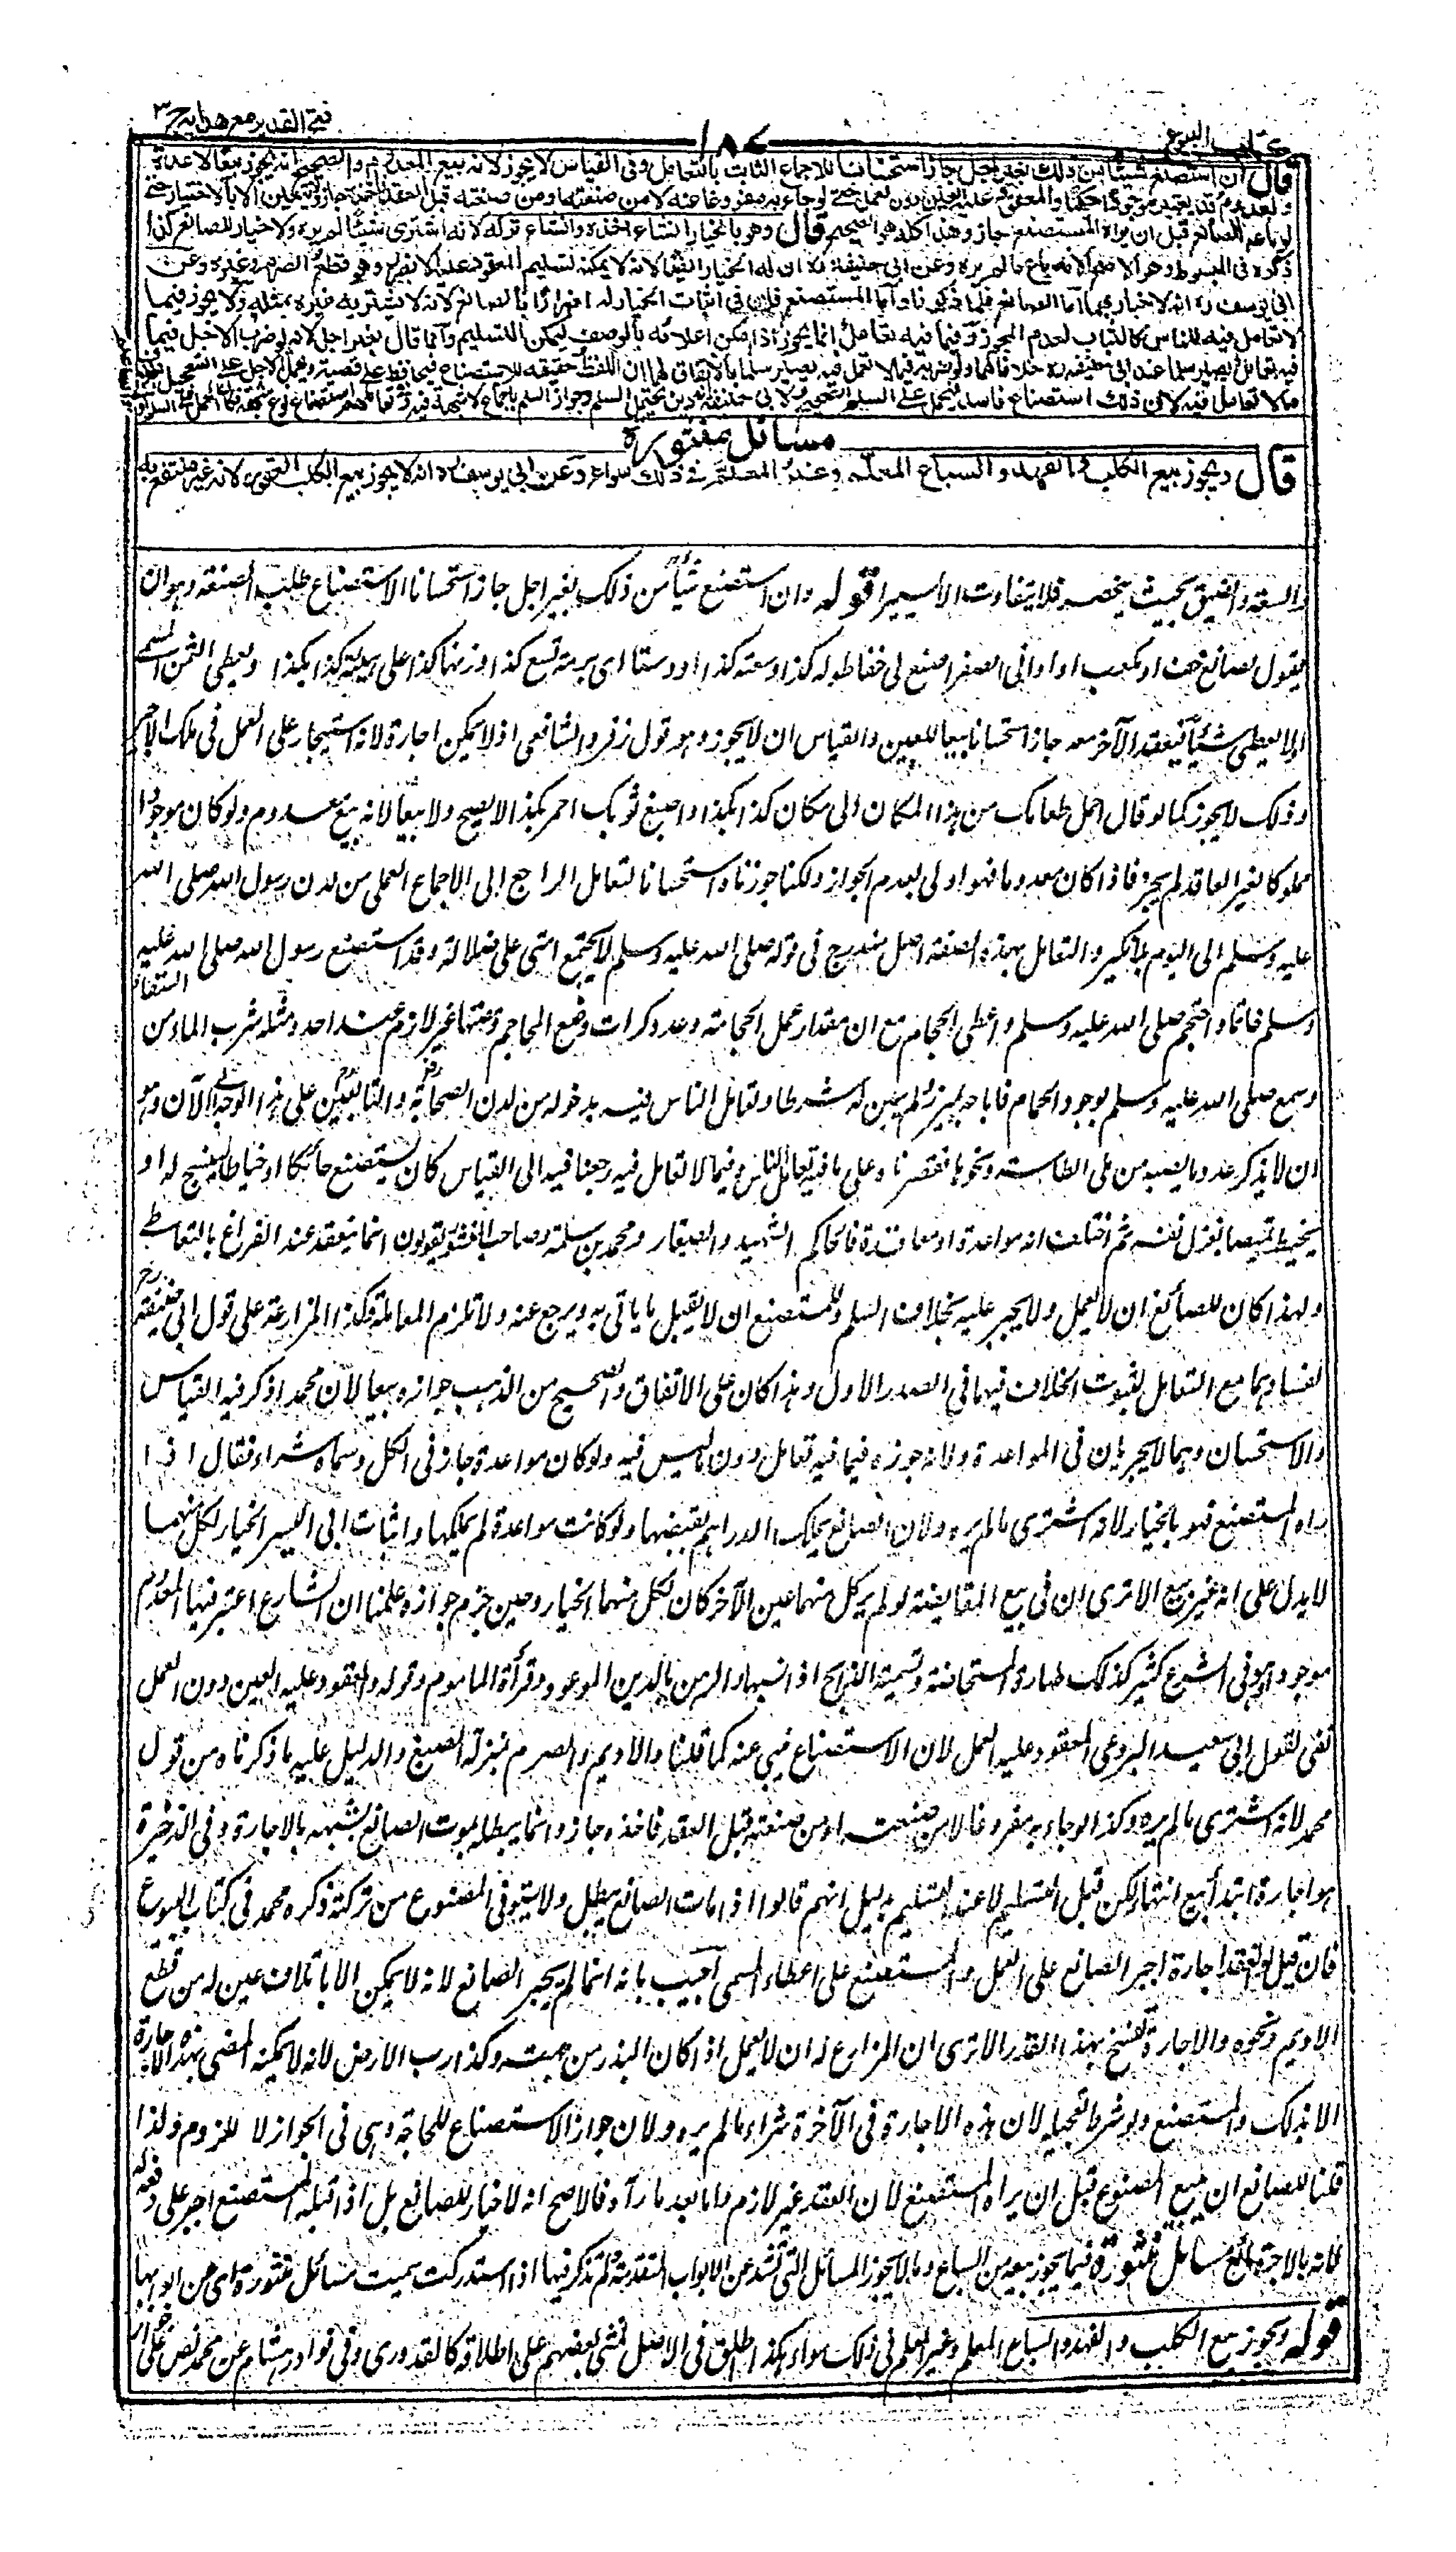 فتح القدير مع هدايه ج ٣
١٨٧
كتاب البيوع
قال ان استصنع شيئا من ذلك بغير اجل جاز استحسانا للاجماع الثابت بالتعامل وفي القياس لا يجوز لانه بيع المعدوم والصحيح انه يجوز بيعا لا عدة
والمعدوم قد يعتبر موجودا حكما والمعقود عليه العين دون العمل حتى لو جاء به مفروغا عنه لا من صنعته او من صنعته قبل العقد فاخذه جاز ولا يتعين الا بالاختيار حتى
لو باعه الصانع قبل ان يراه المستصنع جاز وهذا كله هو الصحيح قال وهو بالخيار ان شاء اخذه وان شاء تركه لانه اشترى شيئا لم يره ولا خيار للصانع كذا
ذكره في المبسوط وهو الاصح لانه باع ما لم يره وعن ابي حنيفة ره ان له الخيار ايضا لانه لا يمكنه تسليم المعقود عليه الا بضرر وهو قطع الصرم وغيره وعن
ابي يوسف ره انه لا خيار لهما اما الصانع فلما ذكرنا واما المستصنع فلان في اثبات الخيار له اضرارا بالصانع لانه لا يشتريه غيره بمثله ولا يجوز فيما
لا تعامل فيه للناس كالثياب لعدم المجوز وفيما فيه تعامل انما يجوز اذا امكن اعلامه بالوصف ليمكن التسليم وانما قال بغير اجل لانه لو ضرب الاجل فيما
فيه تعامل يصير سلما عند ابي حنيفة ره خلافا لهما ولو ضربه فيما لا تعامل فيه يصير سلما بالاتفاق لهما ان اللفظ حقيقة للاستصناع فيحافظ على قضيته ويحمل الاجل على التعجيل بخلاف
ما لا تعامل فيه لان ذلك استصناع فاسد فيحمل على السلم الصحيح ولابي حنيفة انه دين يحتمل السلم وجواز السلم باجماع لا شبهة فيه وفي تعاملهم الاستصناع نوع شبهة فكان الحمل على السلم اولى
مسائل منثورة
قال ويجوز بيع الكلب والفهد والسباع المعلم وغير المعلم في ذلك سواء وعن ابي يوسف ره انه لا يجوز بيع الكلب العقور لانه غير منتفع به
والسعة والضيق بحيث ينحصر فلا يتفاوت الا يسيرا قوله وان استصنع شيئا من ذلك بغير اجل جاز استحسانا الاستصناع طلب الصنعة وهو ان
يقول لصانع خف او مكعب او اواني الصفر اصنع لي خفا طوله كذا وسعته كذا او دستا اي برمة تسع كذا وزنها كذا على هيئة كذا بكذا ويعطي الثمن المسمى
او لا يعطي شيئا فيعقد الآخر معه جاز استحسانا بيعا للعين والقياس ان لا يجوز وهو قول زفر والشافعي اذ لا يمكن اجارة لانه استيجار على العمل في ملك الاجير
وذلك لا يجوز كما لو قال احمل طعامك من هذا المكان الى مكان كذا بكذا او اصبغ ثوبك احمر بكذا لا يصح ولا بيعا لانه بيع معدوم ولو كان موجودا
مملوكا لغير العاقد لم يجز فاذا كان معدوما فهو اولى بعدم الجواز ولكنا جوزناه استحسانا للتعامل الراجع الى الاجماع العملي من لدن رسول الله صلى الله
عليه وسلم الى اليوم بلا نكير والتعامل بهذه الصفة اصل مندرج في قوله صلى الله عليه وسلم لا يجتمع امتي على ضلالة وقد استصنع رسول الله صلى الله عليه
وسلم خاتما واحتجم صلى الله عليه وسلم واعطى الحجام مع ان مقدار عمل الحجامة وعدد كرات وضع المحاجم ومصها غير لازم عند احد ومثله شرب الماء من السقاء
وسمع صلى الله عليه وسلم بوجود الحمام فاباحه بميزر ولم يبين له شرطا وتعامل الناس فيه بدخوله من لدن الصحابة والتابعين على هذا الوجه الى الآن وهو
ان لا يذكر عدد ما يصبه من ملء الطاسة ونحوها فقصرناه على ما فيه تعامل الناس وفيما لا تعامل فيه رجعنا فيه الى القياس كان يستصنع حائكا او خياطا لينسج له او
يخيط قميصا بغزل نفسه ثم اختلف انه مواعدة او معاقدة فالحاكم الشهيد والصفار ومحمد بن سلمة وصاحب المنثور يقولون انما ينعقد عند الفراغ بالتعاطي
ولهذا كان للصانع ان لا يعمل ولا يجبر عليه بخلاف السلم وللمستصنع ان لا يقبل ما ياتي به ويرجع عنه ولا تلزم المعاملة وكذا المزارعة على قول ابي حنيفة رح
لفسادهما مع التعامل لثبوت الخلاف فيهما في الصدر الاول وهذا كان على الاتفاق والصحيح من المذهب جوازه بيعا لان محمدا ذكر فيه القياس
والاستحسان وهما لا يجريان في المواعدة ولانه جوزه فيما فيه تعامل دون ما ليس فيه ولو كان مواعدة جاز في الكل وسماه شراء فقال اذا
رآه المستصنع فهو بالخيار لانه اشترى ما لم يره ولان الصانع يملك الدراهم بقبضها ولو كانت مواعدة لم يملكها واثبات ابي اليسر الخيار لكل منهما
لا يدل على انه غير بيع الا ترى ان في بيع المقايضة لو لم ير كل منهما عين الآخر كان لكل منهما الخيار وحين حزم جوازه علمنا ان الشارع اعتبر فيها المعدوم
موجودا وهو في الشرع كثير كذلك طهارة المستحاضة وتسمية الذابح اذا نسيها والرهن بالدين الموعود وقرأة الماموم وقوله والمعقود عليه العين دون العمل
نفي لقول ابي سعيد البردعي المعقود عليه العمل لان الاستصناع ينبئ عنه كما قلنا والاديم والصرم بمنزلة الصبغ والدليل عليه ما ذكرناه من قول
محمد لانه اشترى ما لم يره وكذا لو جاء به مفروغا لا من صنعته او من صنعته قبل العقد فاخذه جاز وانما يبطله بموت الصانع لشبهه بالاجارة وفي الذخيرة
هو اجارة ابتداء بيع انتهاء لكن قبل التسليم لا عند التسليم بدليل انهم قالوا اذا مات الصانع يبطل ولا يستوفى المصنوع من تركته ذكره محمد في كتاب البيوع
فان قيل لو انعقد اجارة اجبر الصانع على العمل والمستصنع على اعطاء المسمى اجيب بانه انما لم يجبر الصانع لانه لا يمكن الا باتلاف عين له من قطع
الاديم ونحوه والاجارة تفسخ بهذا القدر الا ترى ان المزارع له ان لا يعمل اذا كان البذر من جهته وكذا رب الارض لانه لا يمكنه المضي بهذه الاجارة
الا بذلك والمستصنع ولو شرط تعجيله لان هذه الاجارة في الآخرة شراء ما لم يره ولان جواز الاستصناع للحاجة وهي في الجواز لا اللزوم ولذا
قلنا للصانع ان يبيع المصنوع قبل ان يراه المستصنع لان العقد غير لازم واما بعد ما رآه فالاصح انه لا خيار للصانع بل اذا قبله المستصنع اجبر على دفعه له
لانه بالآخرة بائع مسائل منثورة فيما يجوز بيعه من السباع وما لا يجوز المسائل التي تشذ عن الابواب المتقدمة ولم تذكر فيها اذا استدركت سميت مسائل منثورة اي من ابوابها
قوله ويجوز بيع الكلب والفهد والسباع المعلم وغير المعلم في ذلك سواء هكذا اطلق في الاصل فمشى بعضهم على اطلاقه كالقدوري وفي نوادر هشام عن محمد نص على